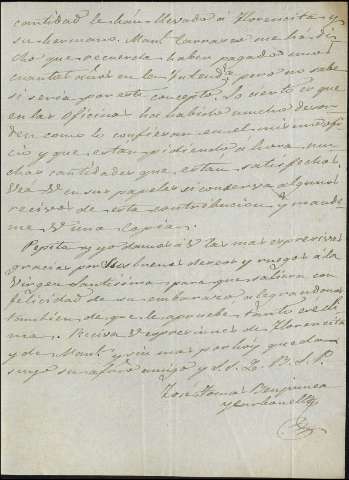 cantidad le han llevado á Florencita y
su hermano. Manl. Carrasco me ha di-
cho que recuerda haber pagado unos
cuantos años en la Intenda. pero no sabe
si seria por este concepto. Lo cierto es que
en las Oficinas ha habido mucho desor-
den como lo confiesan en el mismo ofi-
cio y que estan pidiendo ahora mu-
chas cantidades que están satisfechas.
Vea V en sus papeles si conserva algunos
recivos de esta contribucion y mande-
me V una copia.
Pepita y yo damos á V las mas expresivas
gracias por sus buenos deseos y ruegos á la
Virgen Santisima para que saliera con
felicidad de su embarazo alegrandonos
tambien de que le apruebe tanto ese cli-
ma. Reciva V expresiones de Florencita
y de Manl. y sin mas por hoy queda
suyo su afmo amigo y S. S. Q. B. S. M.
Jose Tomas
y